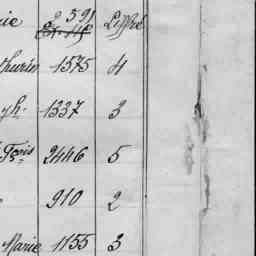 rie 2591 Liffré
thurin 1575 4
ph. 1337 3
Fçois 2446 5
910 2
Marie 1155 3